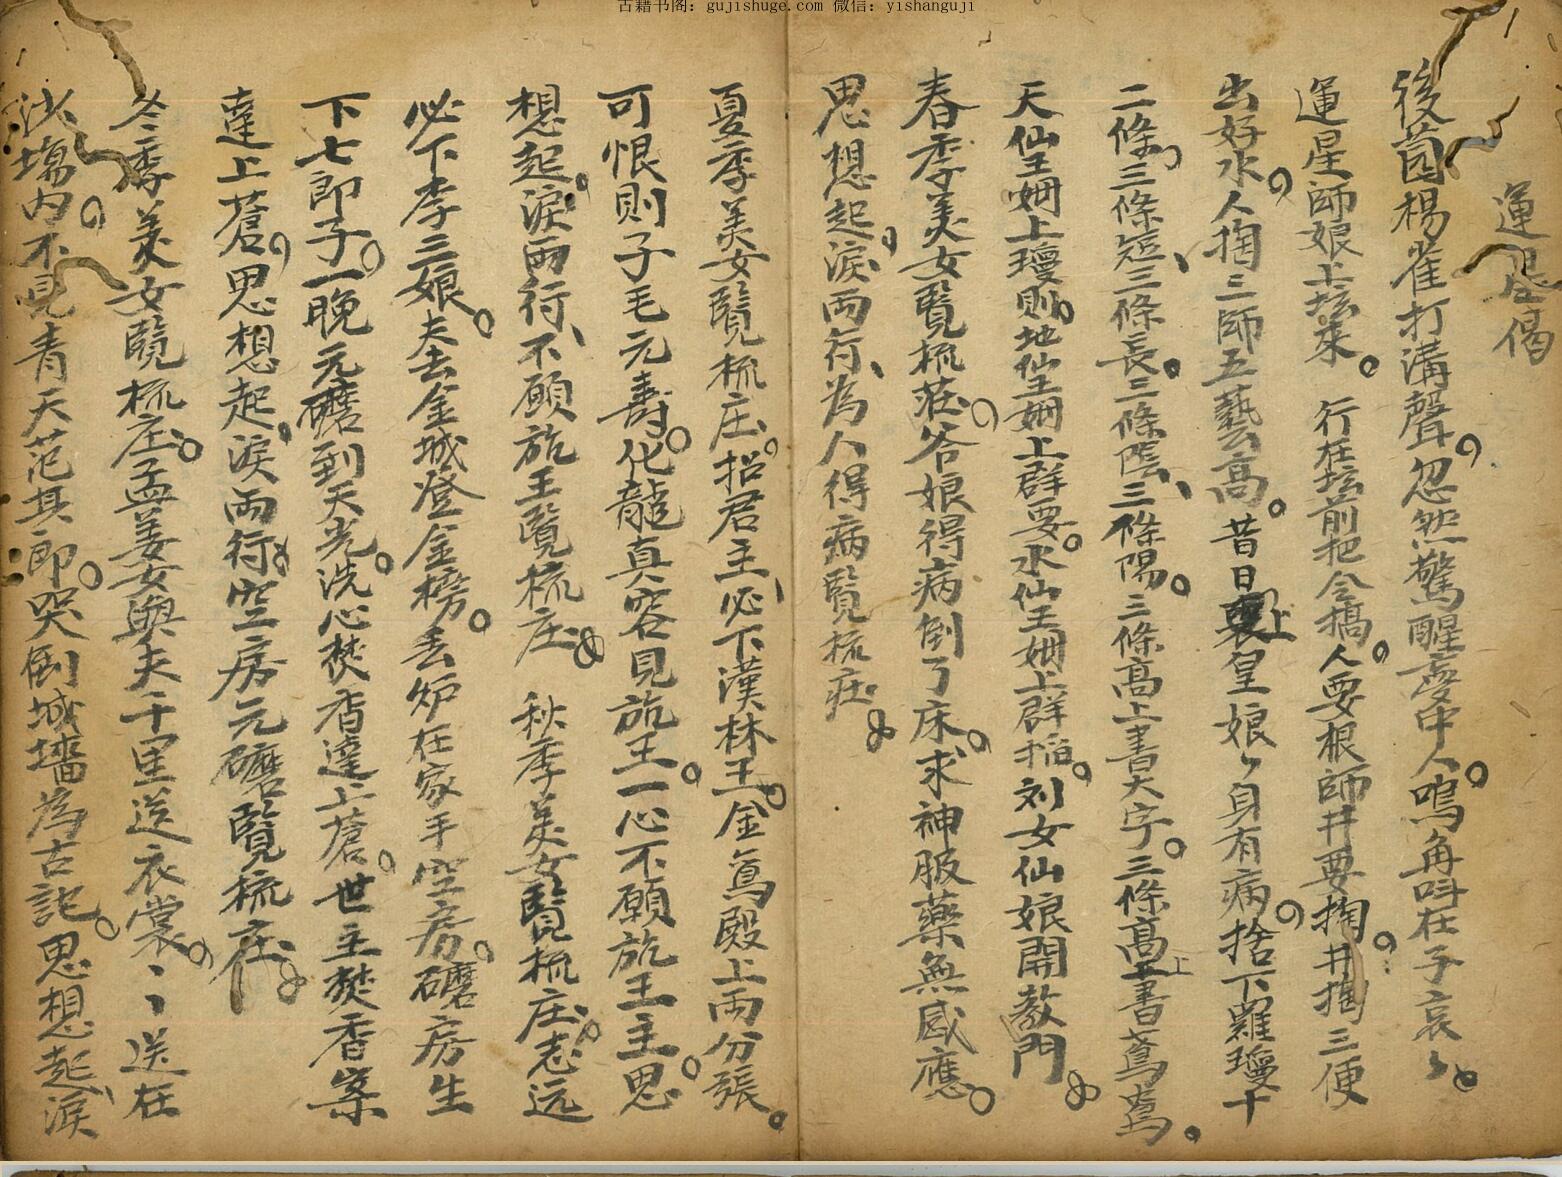 古籍书阁: gujishuge.com 微信: yishanguji
運星偈
後茵楊雀打溝聲忽然驚醒夢中人鳴角呌在子哀〻
運星師娘上坛来 行在坛前把令搞人要根師井要掏井掏三便
出好水人掏三師五藝高昔日上皇娘〻身有病捨下羅瓊十
二條三條短三條長三條陰三條陽三條高上書大字三條高上書鳶鳶
天仙王姆上瓊則地仙王姆上群要水仙王姆上群招刘女仙娘開教門
春季美女覽梳莊爷娘得病倒了床求神服藥無感應
思想起淚両行為人得病覽梳莊
夏季美女覽梳庄招君主必下漢林王金鳶殿上両分張
可恨則子毛元壽化龍真容見旊王一心不願旊王主思
想起淚両行不願旊王覽梳庄 秋季美女覽梳庄志远
必下李三娘夫去金城澄金榜丢妒在家手空房磨房生
下七郎子一晚元磨到天光洗心焚香達上蒼世主焚香案
達上蒼思想起淚両行空房元磨覽梳庄
冬季美女覽梳庄孟姜女與夫千里送衣裳〻〻送在
沙塲内不見青天范其郎哭倒城墻為古記思想起淚